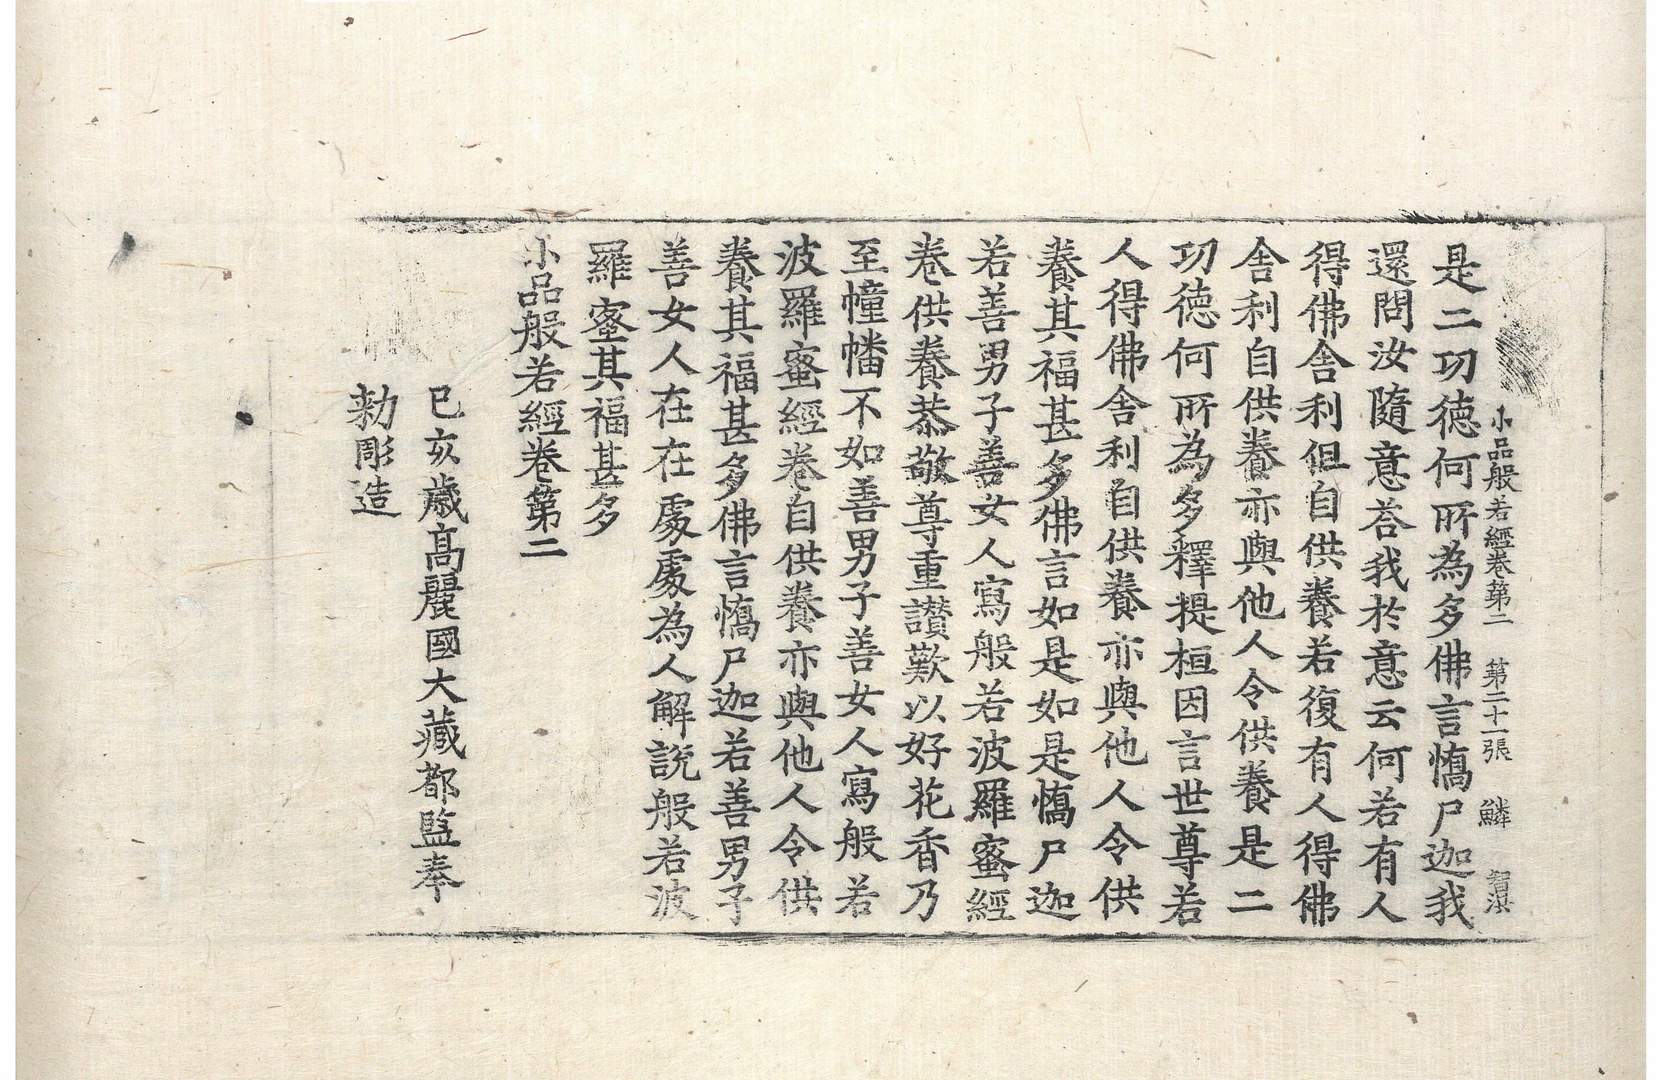 小品般若經卷第二　第二十一張　鱗　智淇
是二功徳何所為多佛言憍尸迦我
還問汝隨意荅我於意云何若有人
得佛舎利但自供養若復有人得佛
舎利自供養亦與他人令供養是二
功徳何所為多釋提桓因言世尊若
人得佛舎利自供養亦與他人令供
養其福甚多佛言如是如是憍尸迦
若善男子善女人寫般若波羅蜜經
卷供養恭敬尊重讃歎以好花香乃
至幢幡不如善男子善女人寫般若
波羅蜜經卷自供養亦與他人令供
養其福甚多佛言憍尸迦若善男子
善女人在在處處為人解說般若波
羅蜜其福甚多
小品般若經卷第二
己亥歲髙麗國大藏都監奉
勅彫造